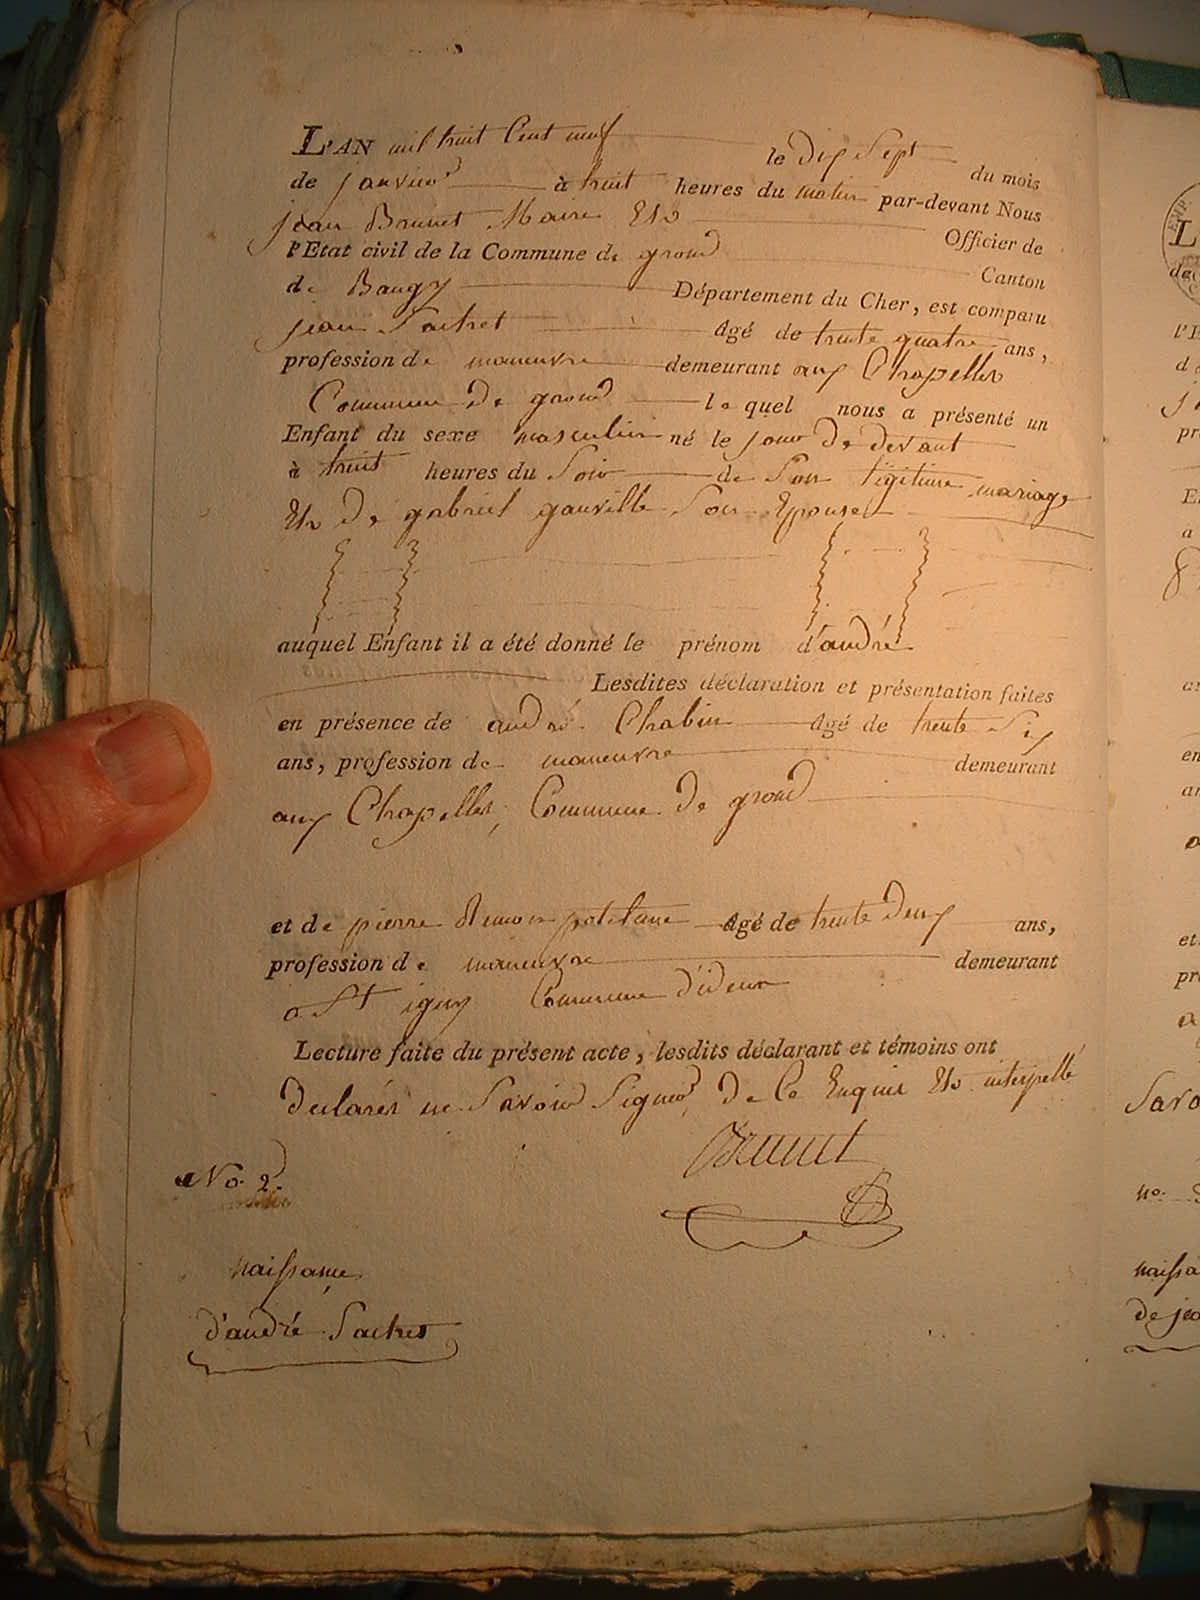 L'AN mil huit Cent neuf le dix Sept du mois
de janvier à huit heures du matin par-devant Nous
jean Brunet Maire Et Officier de
l'Etat civil de la Commune de grond Canton
de Baugy Département du Cher, est comparu
jean Sachet Agé de trente quatre ans,
profession de maneuvre demeurant aux Chapelles
Commune de grond lequel nous a présenté un
Enfant du sexe masculin né le jour de devant
à huit heures du Soir de Son ligitime mariage
Et De gabriel gauville Son Epouse
auquel Enfant il a été donné le prénom d'andré
Lesdites déclaration et présentation faites
en présence de andré Chabin Agé de trente Six
ans, profession de maneuvre demeurant
aux Chapelles, Commune De grond
et de pierre Agé de trente Deux ans,
profession de maneuvre demeurant
a St igny Commune
Lecture faite du présent acte, lesdits déclarant et témoins ont
declarés ne Savoir Signer, De Ce Enquis Et interpellé
Brunet
No. 2.
naissance
d'andré Sachet